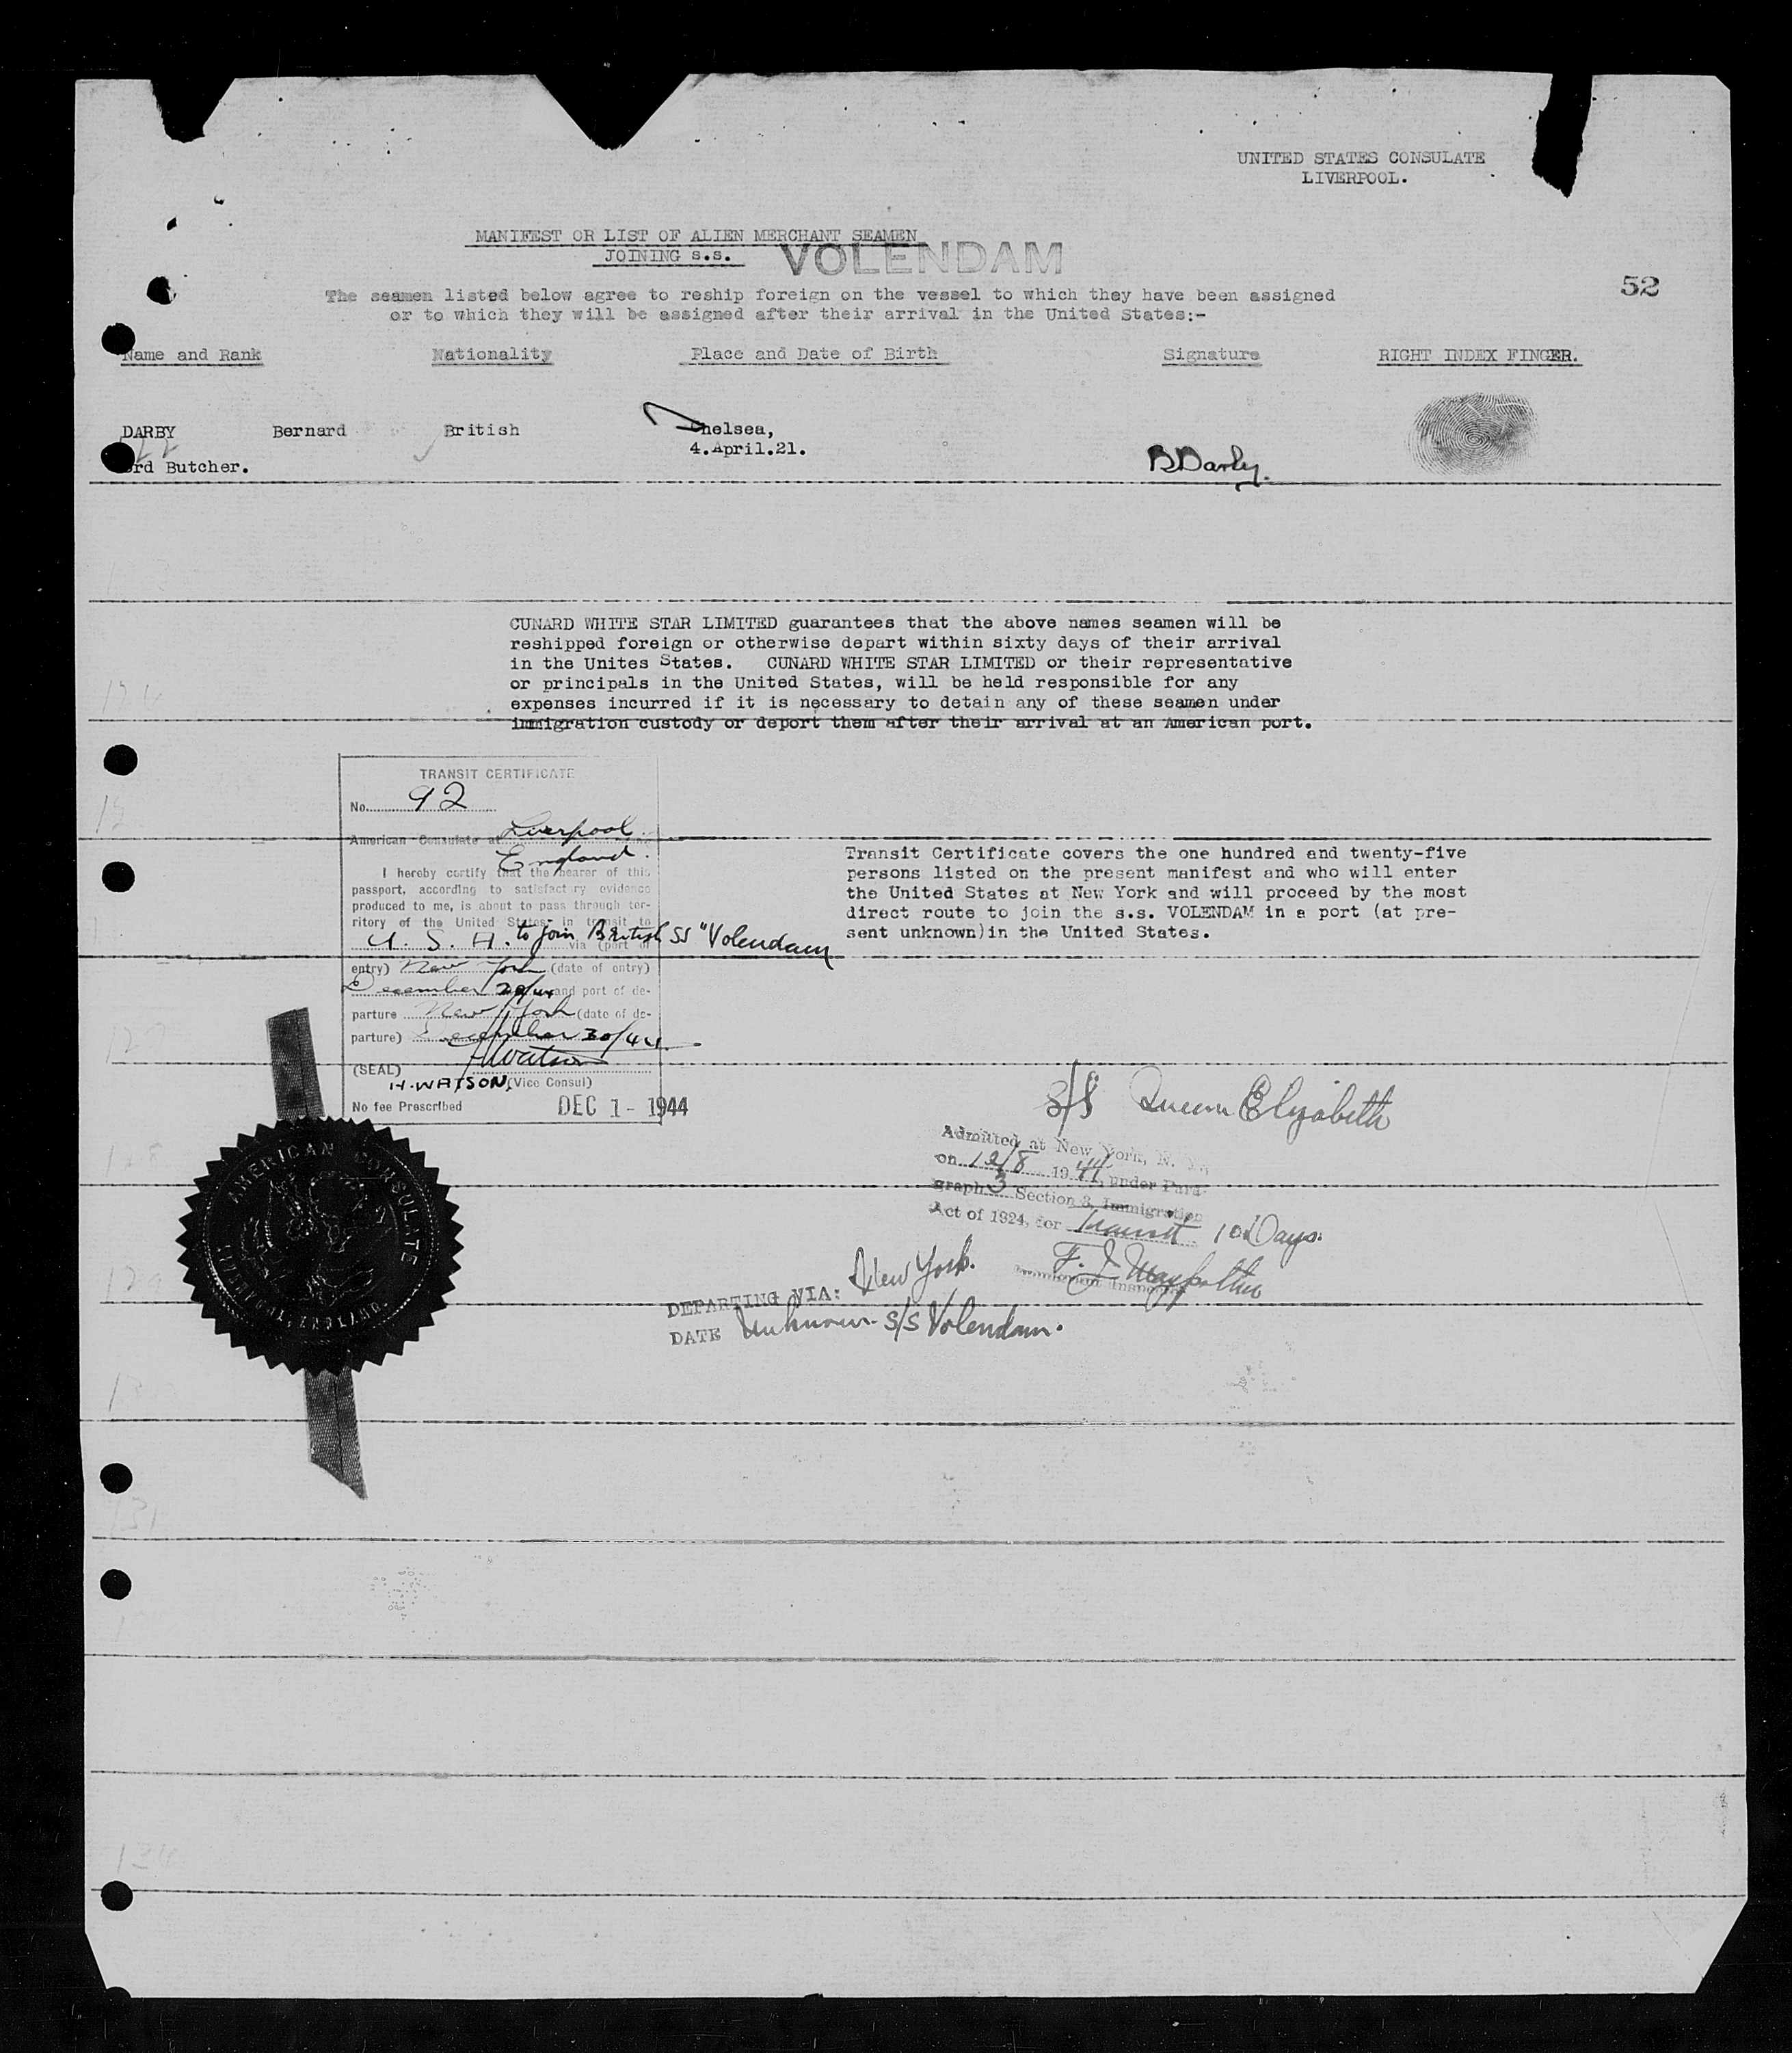 UNITED STATES CONSULATE
LIVERPOOL.
MANIFEST OR LIST OF ALIEN MERCHANT SEAMEN
JOINING s.s. VOLENDAM
52
The seamen listed below agree to reship foreign on the vessel to which they have been assigned
or to which they will be assigned after their arrival in the United States:-
Name and Rank Nationality Place and Date of Birth Signature RIGHT INDEX FINGER.
DARBY Bernard British Chelsea,
4.April.21.
B Darby.
rd Butcher.
CUNARD WHITE STAR LIMITED guarantees that the above names seamen will be
reshipped foreign or otherwise depart within sixty days of their arrival
in the Unites States. CUNARD WHITE STAR LIMITED or their representative
or principals in the United States, will be held responsible for any
expenses incurred if it is necessary to detain any of these seamen under
immigration custody or deport them after their arrival at an American port.
TRANSIT CERTIFICATE
No. 92
American Consulate at Liverpool
England.
I hereby certify that the bearer of this
passport, according to satisfactory evidence
produced to me, is about to pass through ter-
ritory of the United States in transit to
U. S. A. to join British SS "Volendam
via (port of
entry) New York (date of entry)
December 29/44 and port of de-
parture New York (date of de-
parture) December 30/44
H Watson
(SEAL)
H. WATSON (Vice Consul)
No fee Prescribed DEC 1 - 1944
Transit Certificate covers the one hundred and twenty-five
persons listed on the present manifest and who will enter
the United States at New York and will proceed by the most
direct route to join the s.s. VOLENDAM in a port (at pre-
sent unknown)in the United States.
S/S Queen Elizabeth
Admitted at New York, N. Y.,
on 12/8 1944, under Para-
graph 3 Section 3, Immigration
Act of 1924, for Transit 10 Days.
AMERICAN CONSULATE
LIVERPOOL, ENGLAND.
DEPARTING VIA: New York.
DATE Unknown - S/S Volendam.